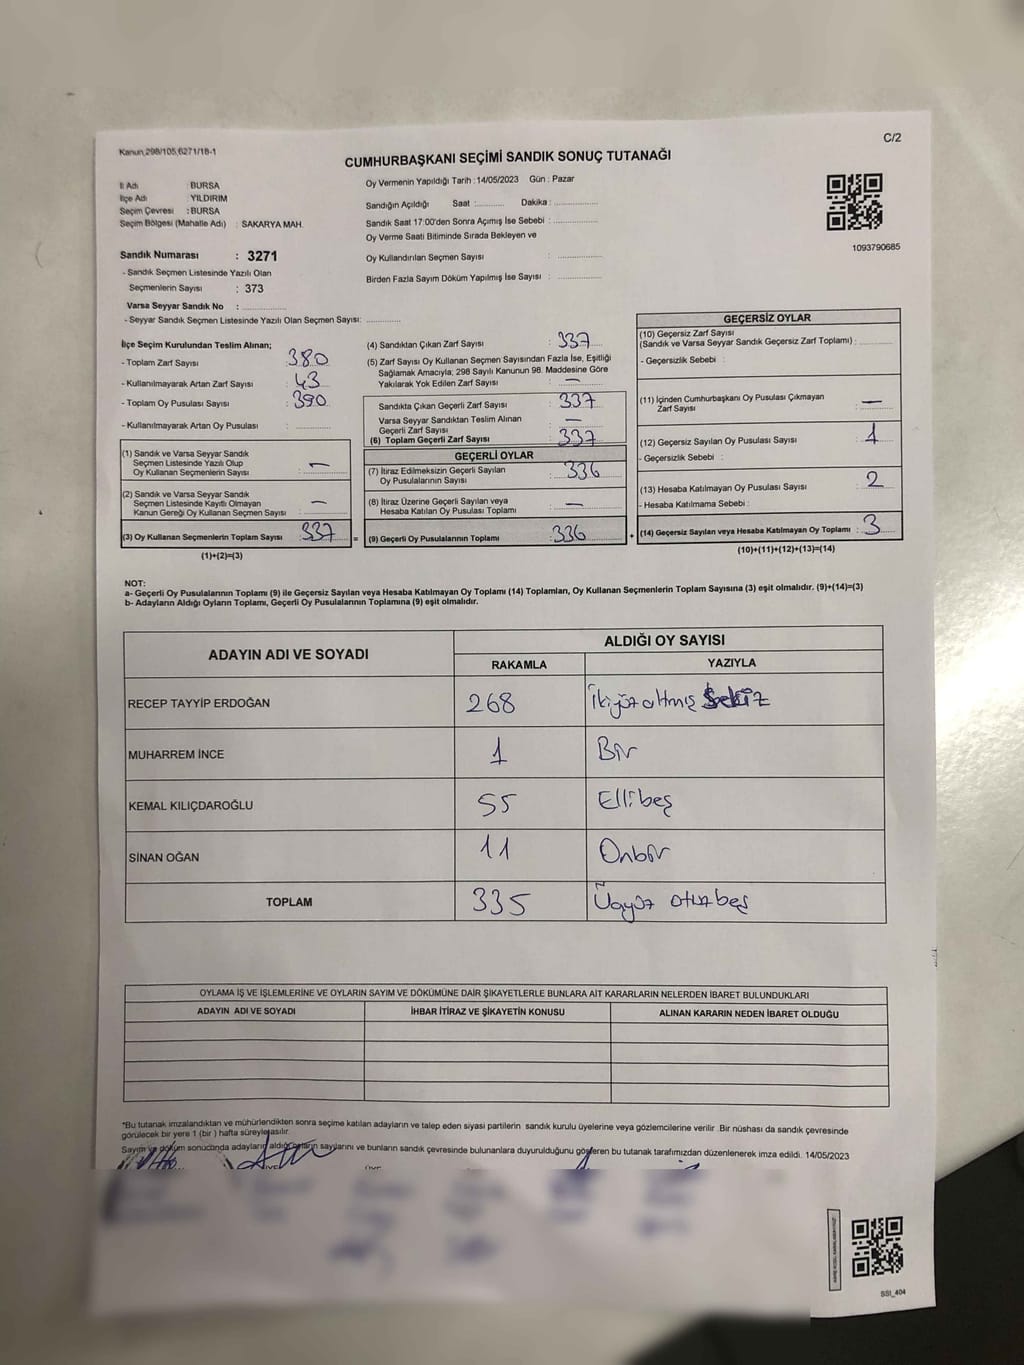 C/2
Kanun 298/105,6271/18-1
CUMHURBAŞKANI SEÇİMİ SANDIK SONUÇ TUTANAĞI
İl Adı : BURSA
İlçe Adı : YILDIRIM
Seçim Çevresi : BURSA
Seçim Bölgesi (Mahalle Adı) : SAKARYA MAH.
Oy Vermenin Yapıldığı Tarih : 14/05/2023 Gün : Pazar
Sandığın Açıldığı Saat :............ Dakika :................
Sandık Saat 17:00'den Sonra Açımış İse Sebebi :................
Oy Verme Saati Bitiminde Sırada Bekleyen ve
Oy Kullandırılan Seçmen Sayısı :................
Birden Fazla Sayım Döküm Yapılmış İse Sayısı :................
1093790685
Sandık Numarası : 3271
- Sandık Seçmen Listesinde Yazılı Olan
Seçmenlerin Sayısı : 373
Varsa Seyyar Sandık No :................
- Seyyar Sandık Seçmen Listesinde Yazılı Olan Seçmen Sayısı:............
İlçe Seçim Kurulundan Teslim Alınan;
- Toplam Zarf Sayısı : 380
- Kullanılmayarak Artan Zarf Sayısı : 43
- Toplam Oy Pusulası Sayısı : 390
- Kullanılmayarak Artan Oy Pusulası :............
(1) Sandık ve Varsa Seyyar Sandık
Seçmen Listesinde Yazılı Olup
Oy Kullanan Seçmenlerin Sayısı : —
(2) Sandık ve Varsa Seyyar Sandık
Seçmen Listesinde Kayıtlı Olmayan
Kanun Gereği Oy Kullanan Seçmen Sayısı : —
(3) Oy Kullanan Seçmenlerin Toplam Sayısı : 337 =
(1)+(2)=(3)
(4) Sandıktan Çıkan Zarf Sayısı : 337
(5) Zarf Sayısı Oy Kullanan Seçmen Sayısından Fazla İse, Eşitliği
Sağlamak Amacıyla; 298 Sayılı Kanunun 98. Maddesine Göre
Yakılarak Yok Edilen Zarf Sayısı : —
Sandıkta Çıkan Geçerli Zarf Sayısı : 337
Varsa Seyyar Sandıktan Teslim Alınan
Geçerli Zarf Sayısı : —
(6) Toplam Geçerli Zarf Sayısı : 337
GEÇERLİ OYLAR
(7) İtiraz Edilmeksizin Geçerli Sayılan
Oy Pusulalarının Sayısı : 336
(8) İtiraz Üzerine Geçerli Sayılan veya
Hesaba Katılan Oy Pusulası Toplamı : —
(9) Geçerli Oy Pusulalarının Toplamı : 336 +
GEÇERSİZ OYLAR
(10) Geçersiz Zarf Sayısı
(Sandık ve Varsa Seyyar Sandık Geçersiz Zarf Toplamı) :............
- Geçersizlik Sebebi :
(11) İçinden Cumhurbaşkanı Oy Pusulası Çıkmayan
Zarf Sayısı : —
(12) Geçersiz Sayılan Oy Pusulası Sayısı : 1
- Geçersizlik Sebebi :
(13) Hesaba Katılmayan Oy Pusulası Sayısı : 2
- Hesaba Katılmama Sebebi :
(14) Geçersiz Sayılan veya Hesaba Katılmayan Oy Toplamı : 3
(10)+(11)+(12)+(13)=(14)
NOT:
a- Geçerli Oy Pusulalarının Toplamı (9) ile Geçersiz Sayılan veya Hesaba Katılmayan Oy Toplamı (14) Toplamları, Oy Kullanan Seçmenlerin Toplam Sayısına (3) eşit olmalıdır. (9)+(14)=(3)
b- Adayların Aldığı Oyların Toplamı, Geçerli Oy Pusulalarının Toplamına (9) eşit olmalıdır.
ADAYIN ADI VE SOYADI
ALDIĞI OY SAYISI
RAKAMLA YAZIYLA
RECEP TAYYİP ERDOĞAN 268 İkiyüz altmış sekiz
MUHARREM İNCE 1 Bir
KEMAL KILIÇDAROĞLU 55 Ellibeş
SİNAN OĞAN 11 Onbir
TOPLAM 335 Üçyüz otuzbeş
OYLAMA İŞ VE İŞLEMLERİNE VE OYLARIN SAYIM VE DÖKÜMÜNE DAİR ŞİKAYETLERLE BUNLARA AİT KARARLARIN NELERDEN İBARET BULUNDUKLARI
ADAYIN ADI VE SOYADI İHBAR İTİRAZ VE ŞİKAYETİN KONUSU ALINAN KARARIN NEDEN İBARET OLDUĞU
*Bu tutanak imzalandıktan ve mühürlendikten sonra seçime katılan adayların ve talep eden siyasi partilerin sandık kurulu üyelerine veya gözlemcilerine verilir .Bir nüshası da sandık çevresinde
görülecek bir yere 1 (bir ) hafta süreyle asılır.
Sayım ve döküm sonucunda adayların aldığı oyların sayılarını ve bunların sandık çevresinde bulunanlara duyurulduğunu gösteren bu tutanak tarafımızdan düzenlenerek imza edildi. 14/05/2023
SSI_404